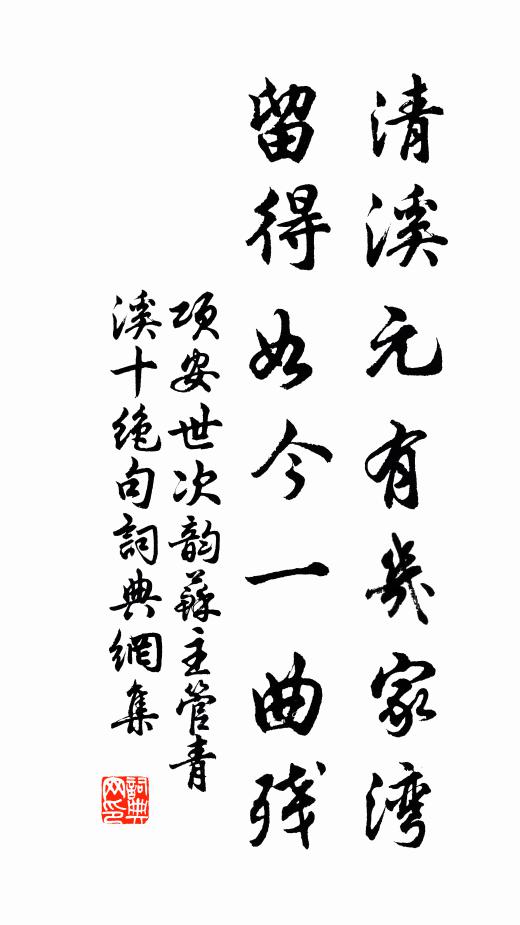 清溪元有幾家湾
留得如今一曲残
項安世次韵蘇主管青
溪十絶句詞典網集
詞典
网印